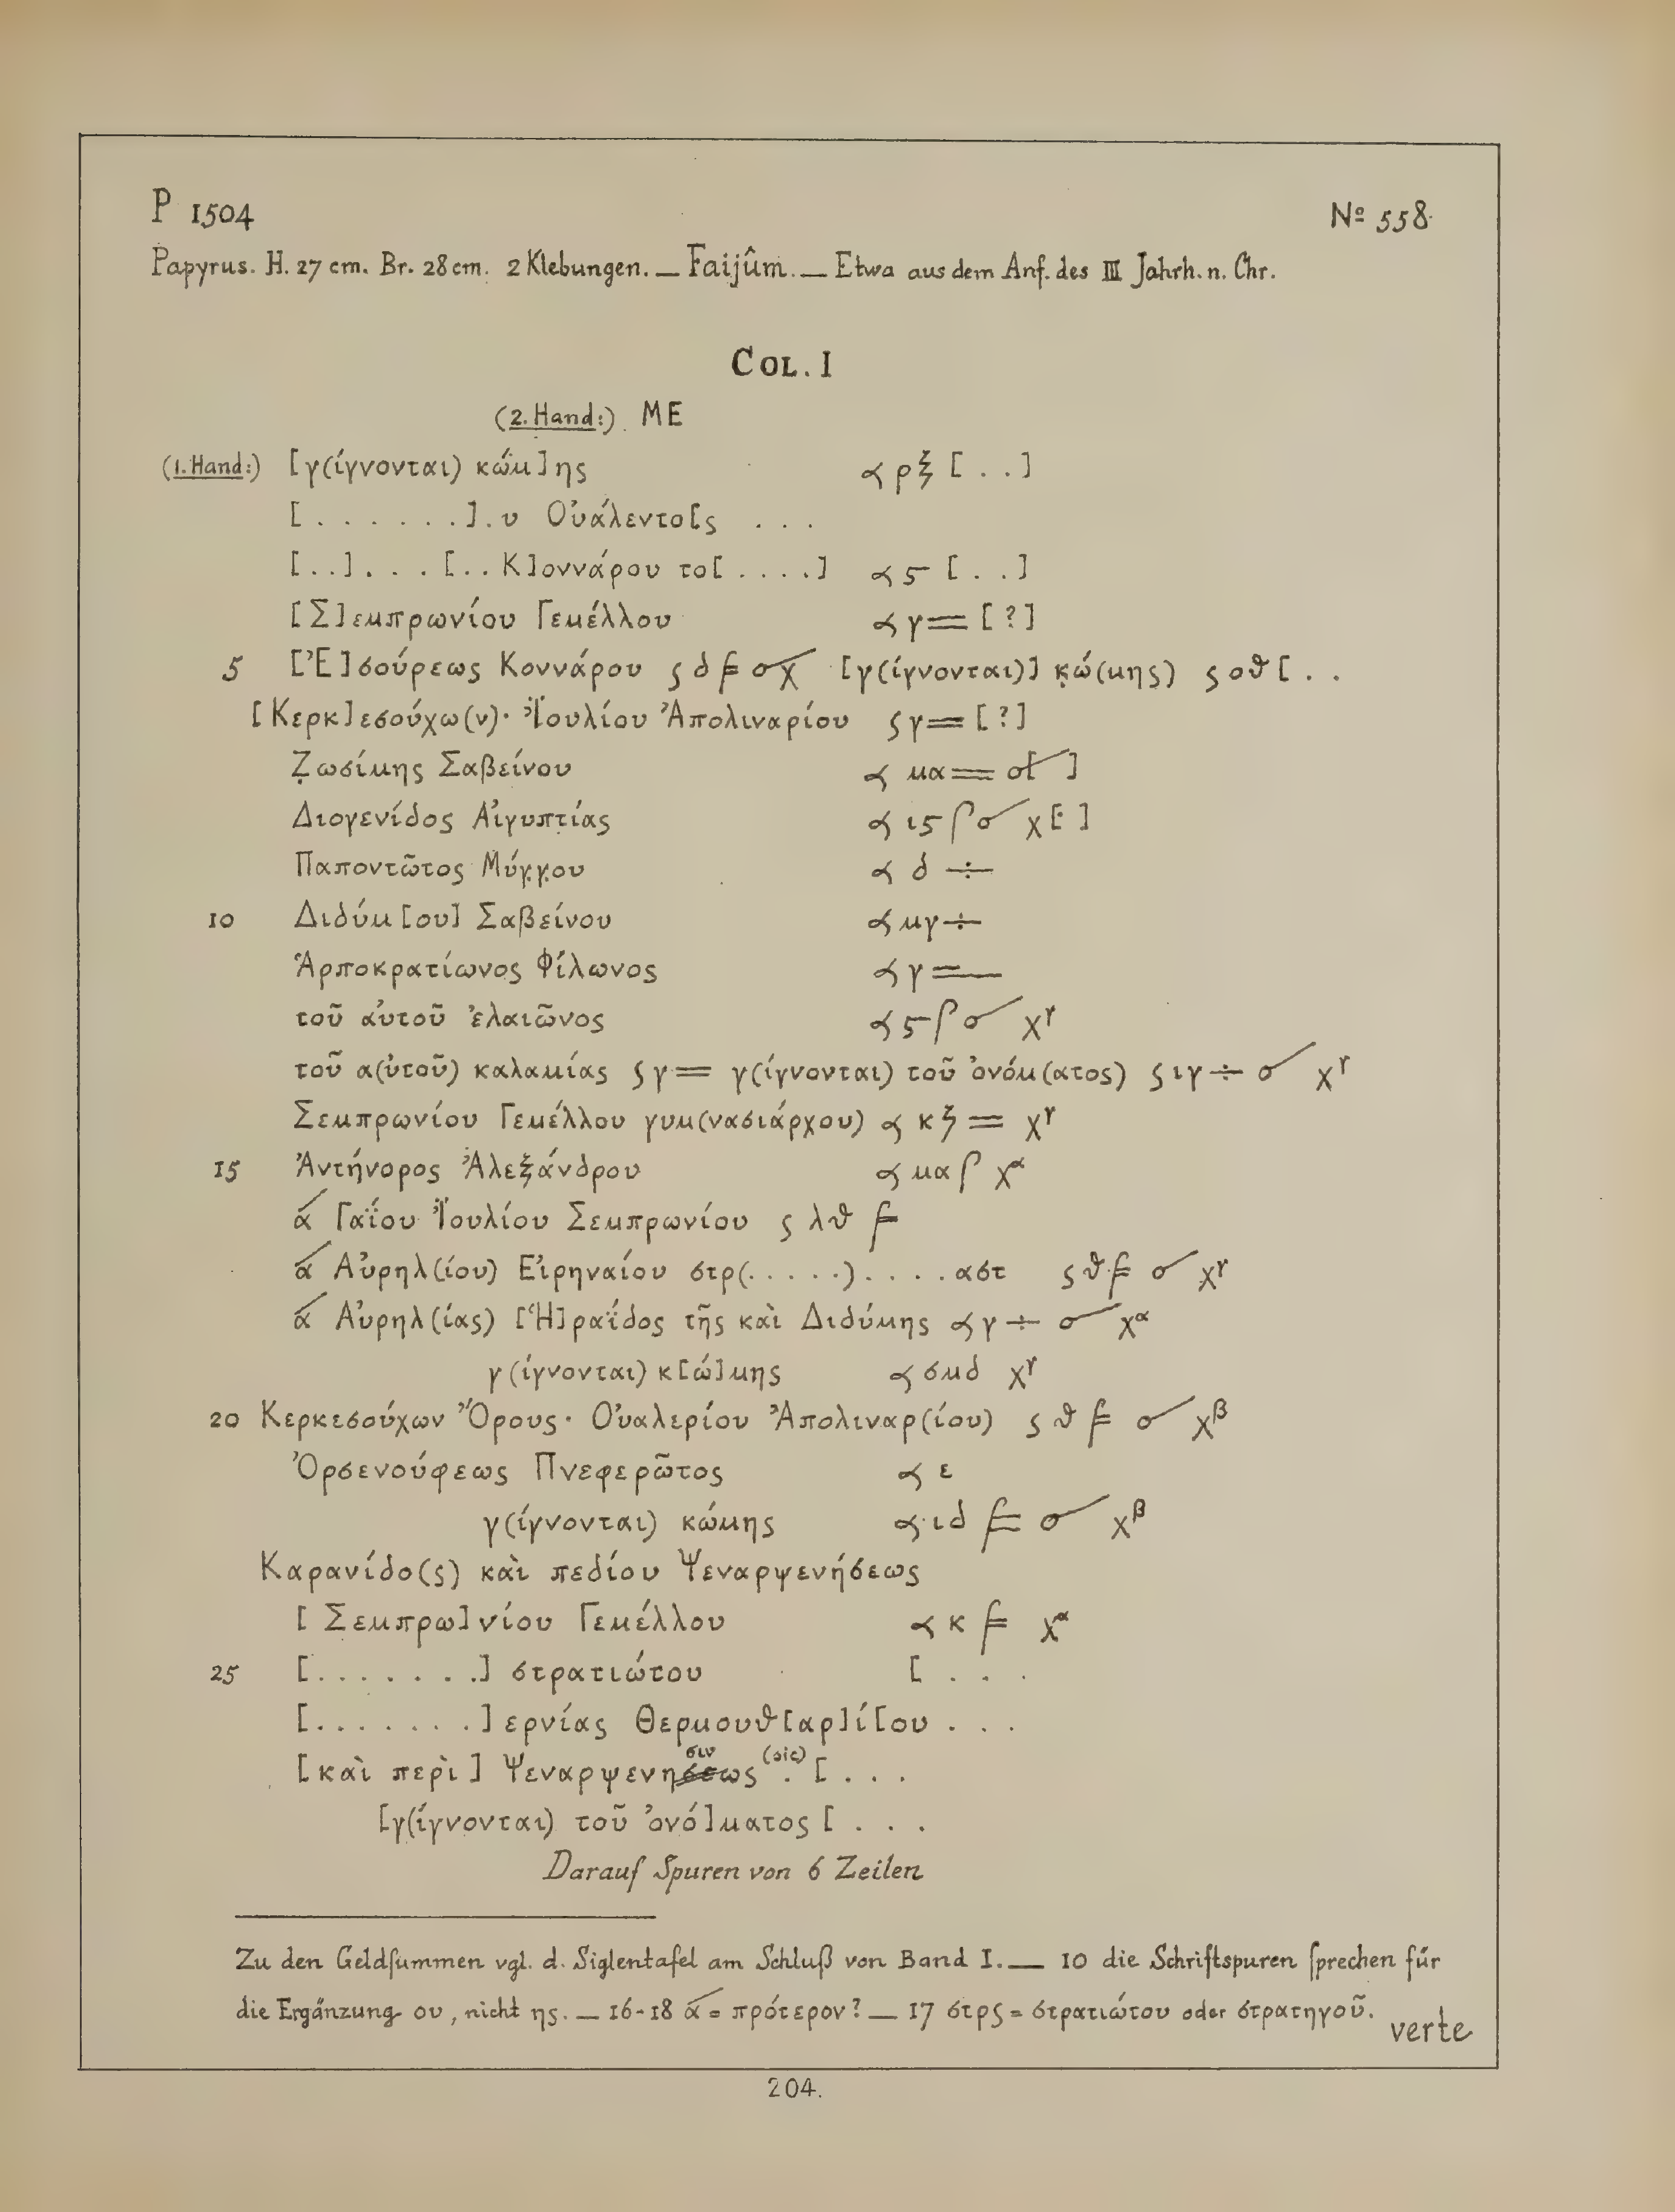 P 1504 Nº 558.
Papyrus. H. 27 cm. Br. 28 cm. 2 Klebungen. — Faijûm. — Etwa aus dem Anf. des III Jahrh. n. Chr.
COL. I
(2. Hand:) ΜΕ
(1. Hand:) [γ(ίγνονται) κώμ]ης ρξ [..]
[.......].υ Οὐάλεντο[ς ...
[..]...[.. Κ]οννάρου το[....] 5 [..]
[Σ]εμπρωνίου Γεμέλλου γ= [?]
5 [Ἐ]σούρεως Κοννάρου ϛ δ [γ(ίγνονται)] κώ(μης) ϛ οθ [..
[Κερκ]εσούχω(ν)· Ἰουλίου Ἀπολιναρίου ϛ γ= [?]
Ζωσίμης Σαβείνου μα=
Διογενίδος Αἰγυπτίας ιϛ χ[.]
Παποντῶτος Μύγγου δ ÷
10 Διδύμ[ου] Σαβείνου μγ ÷
Ἁρποκρατίωνος Φίλωνος γ=—
τοῦ αὐτοῦ ἐλαιῶνος ϛ χγ
τοῦ α(ὐτοῦ) καλαμίας ϛ γ= γ(ίγνονται) τοῦ ὀνόμ(ατος) ϛ ιγ ÷ χγ
Σεμπρωνίου Γεμέλλου γυμ(νασιάρχου) κζ = χγ
15 Ἀντήνορος Ἀλεξάνδρου μα χα
α Γαΐου Ἰουλίου Σεμπρωνίου ϛ λθ
α Αὐρηλ(ίου) Εἰρηναίου στρ(.....)....αστ ϛ θ χγ
α Αὐρηλ(ίας) [Ἡ]ραΐδος τῆς καὶ Διδύμης γ ÷ χα
γ(ίγνονται) κ[ώ]μης σμδ χγ
20 Κερκεσούχων Ὄρους· Οὐαλερίου Ἀπολιναρ(ίου) ϛ θ χβ
Ὀρσενούφεως Πνεφερῶτος ε
γ(ίγνονται) κώμης ιδ χβ
Καρανίδο(ς) καὶ πεδίου Ψεναρψενήσεως
[Σεμπρω]νίου Γεμέλλου κ χα
25 [........] στρατιώτου [...
[........]ερνίας Θερμουθ[αρ]ί[ου ...
[καὶ περὶ] Ψεναρψενησεως σιν (sic) . [...
[γ(ίγνονται) τοῦ ὀνό]ματος [...
Darauf Spuren von 6 Zeilen
Zu den Geldsummen vgl. d. Siglentafel am Schluß von Band I. — 10 die Schriftspuren sprechen für
die Ergänzung ου, nicht ης. — 16-18 α = πρότερον? — 17 στρς = στρατιώτου oder στρατηγοῦ.
verte
204.